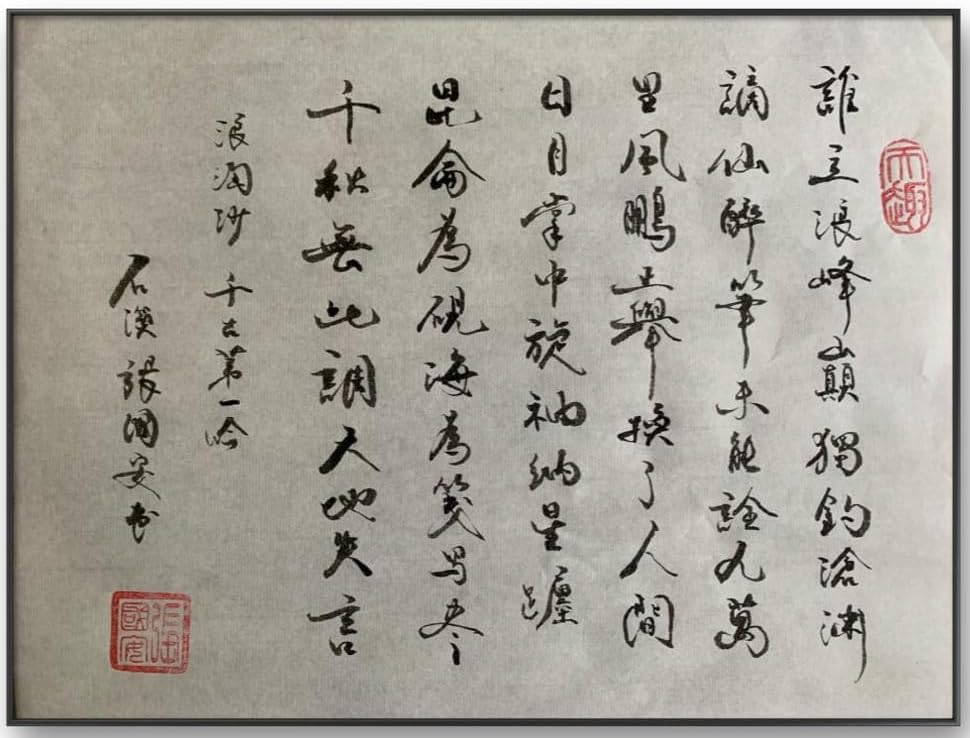 天趣
誰立浪峰巔獨釣滄淵
謫仙醉筆未能詮九萬
里風鵬正舉換了人間
日月掌中旋袖納星躔
昆侖為硯海為箋写尽
千秋無此調天地失言
浪淘沙 千古第一哈
石 張國安书
張國安